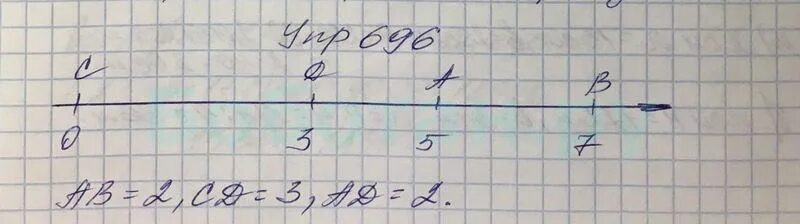 Упр 696
C D A B
0 3 5 7
AB = 2, CD = 3, AD = 2.